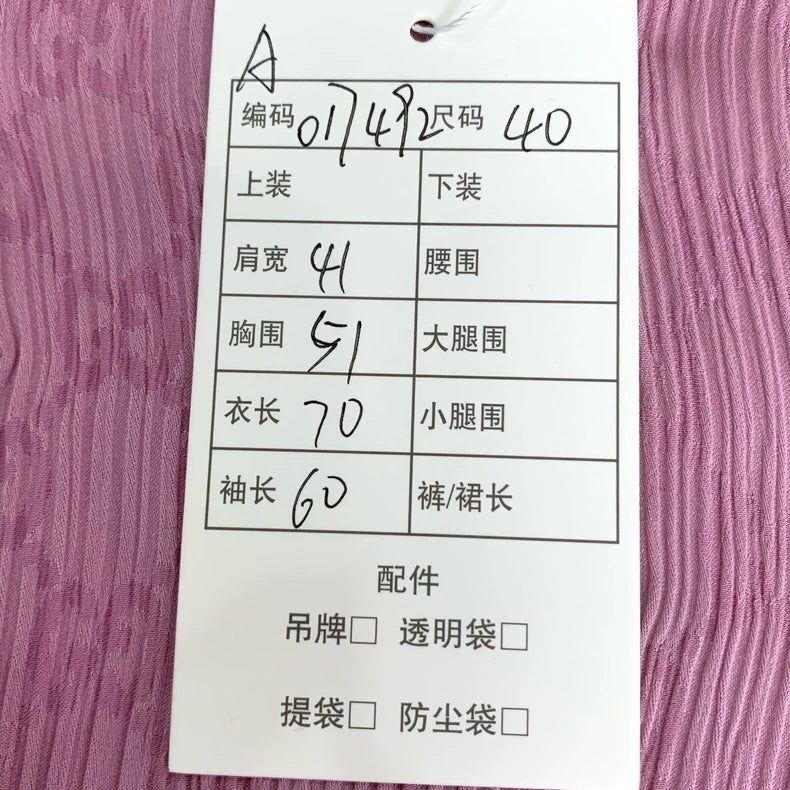 A
编码 017492 尺码 40
上装 下装
肩宽 41 腰围
胸围 51 大腿围
衣长 70 小腿围
袖长 60 裤/裙长
配件
吊牌□ 透明袋□
提袋□ 防尘袋□